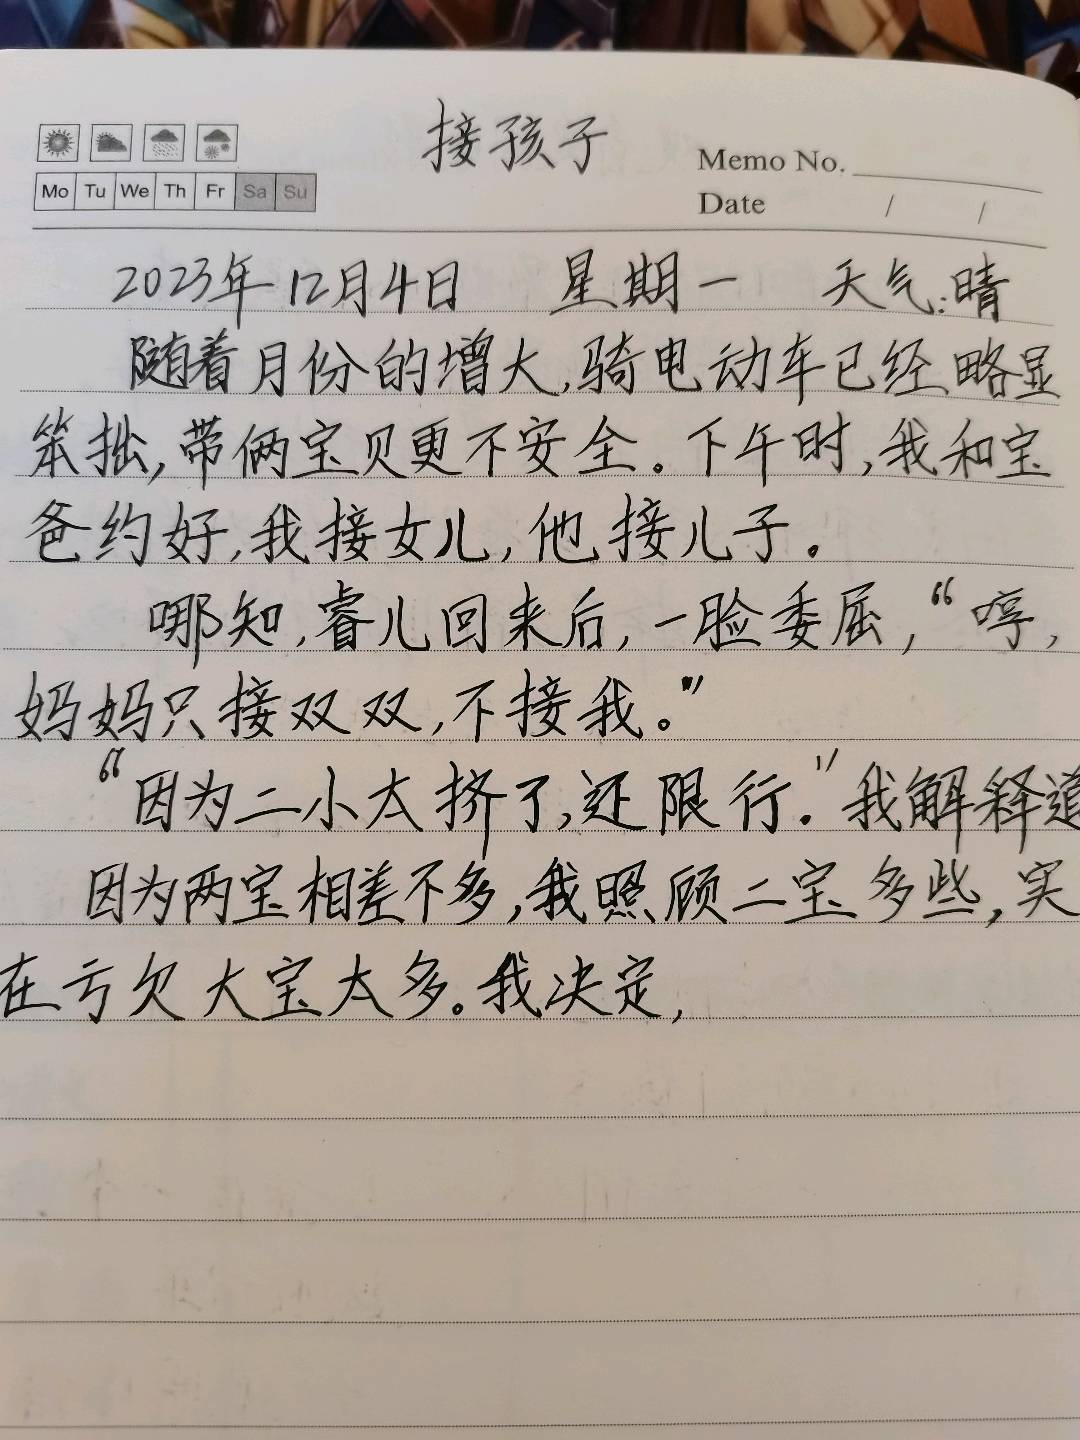 接孩子
Memo No.
Mo Tu We Th Fr Sa Su
Date / /
2023年12月4日 星期一 天气:晴
随着月份的增大,骑电动车已经略显
笨拙,带俩宝贝更不安全。下午时,我和宝
爸约好,我接女儿,他接儿子。
哪知,睿儿回来后,一脸委屈,“哼,
妈妈只接双双,不接我。”
“因为二小太挤了,还限行.”我解释道
因为两宝相差不多,我照顾二宝多些,实
在亏欠大宝太多。我决定,